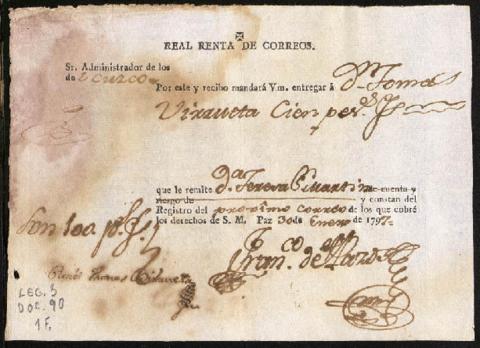 REAL RENTA DE CORREOS.
Sr. Administrador de los
de Cuzco
Por este y recibo mandará Vm. entregar á Dn. Tomas
Vizqueta Cien pes.
que le remite Da. Teresa de cuenta y
riesgo de y constan del
Registro del proximo correo de los que cobré
los derechos de S. M. Paz 30 de Enero de 1797.
Son 100 ps.
Franco. de
Thomas
LEG. 3
DOC. 90
1 F.